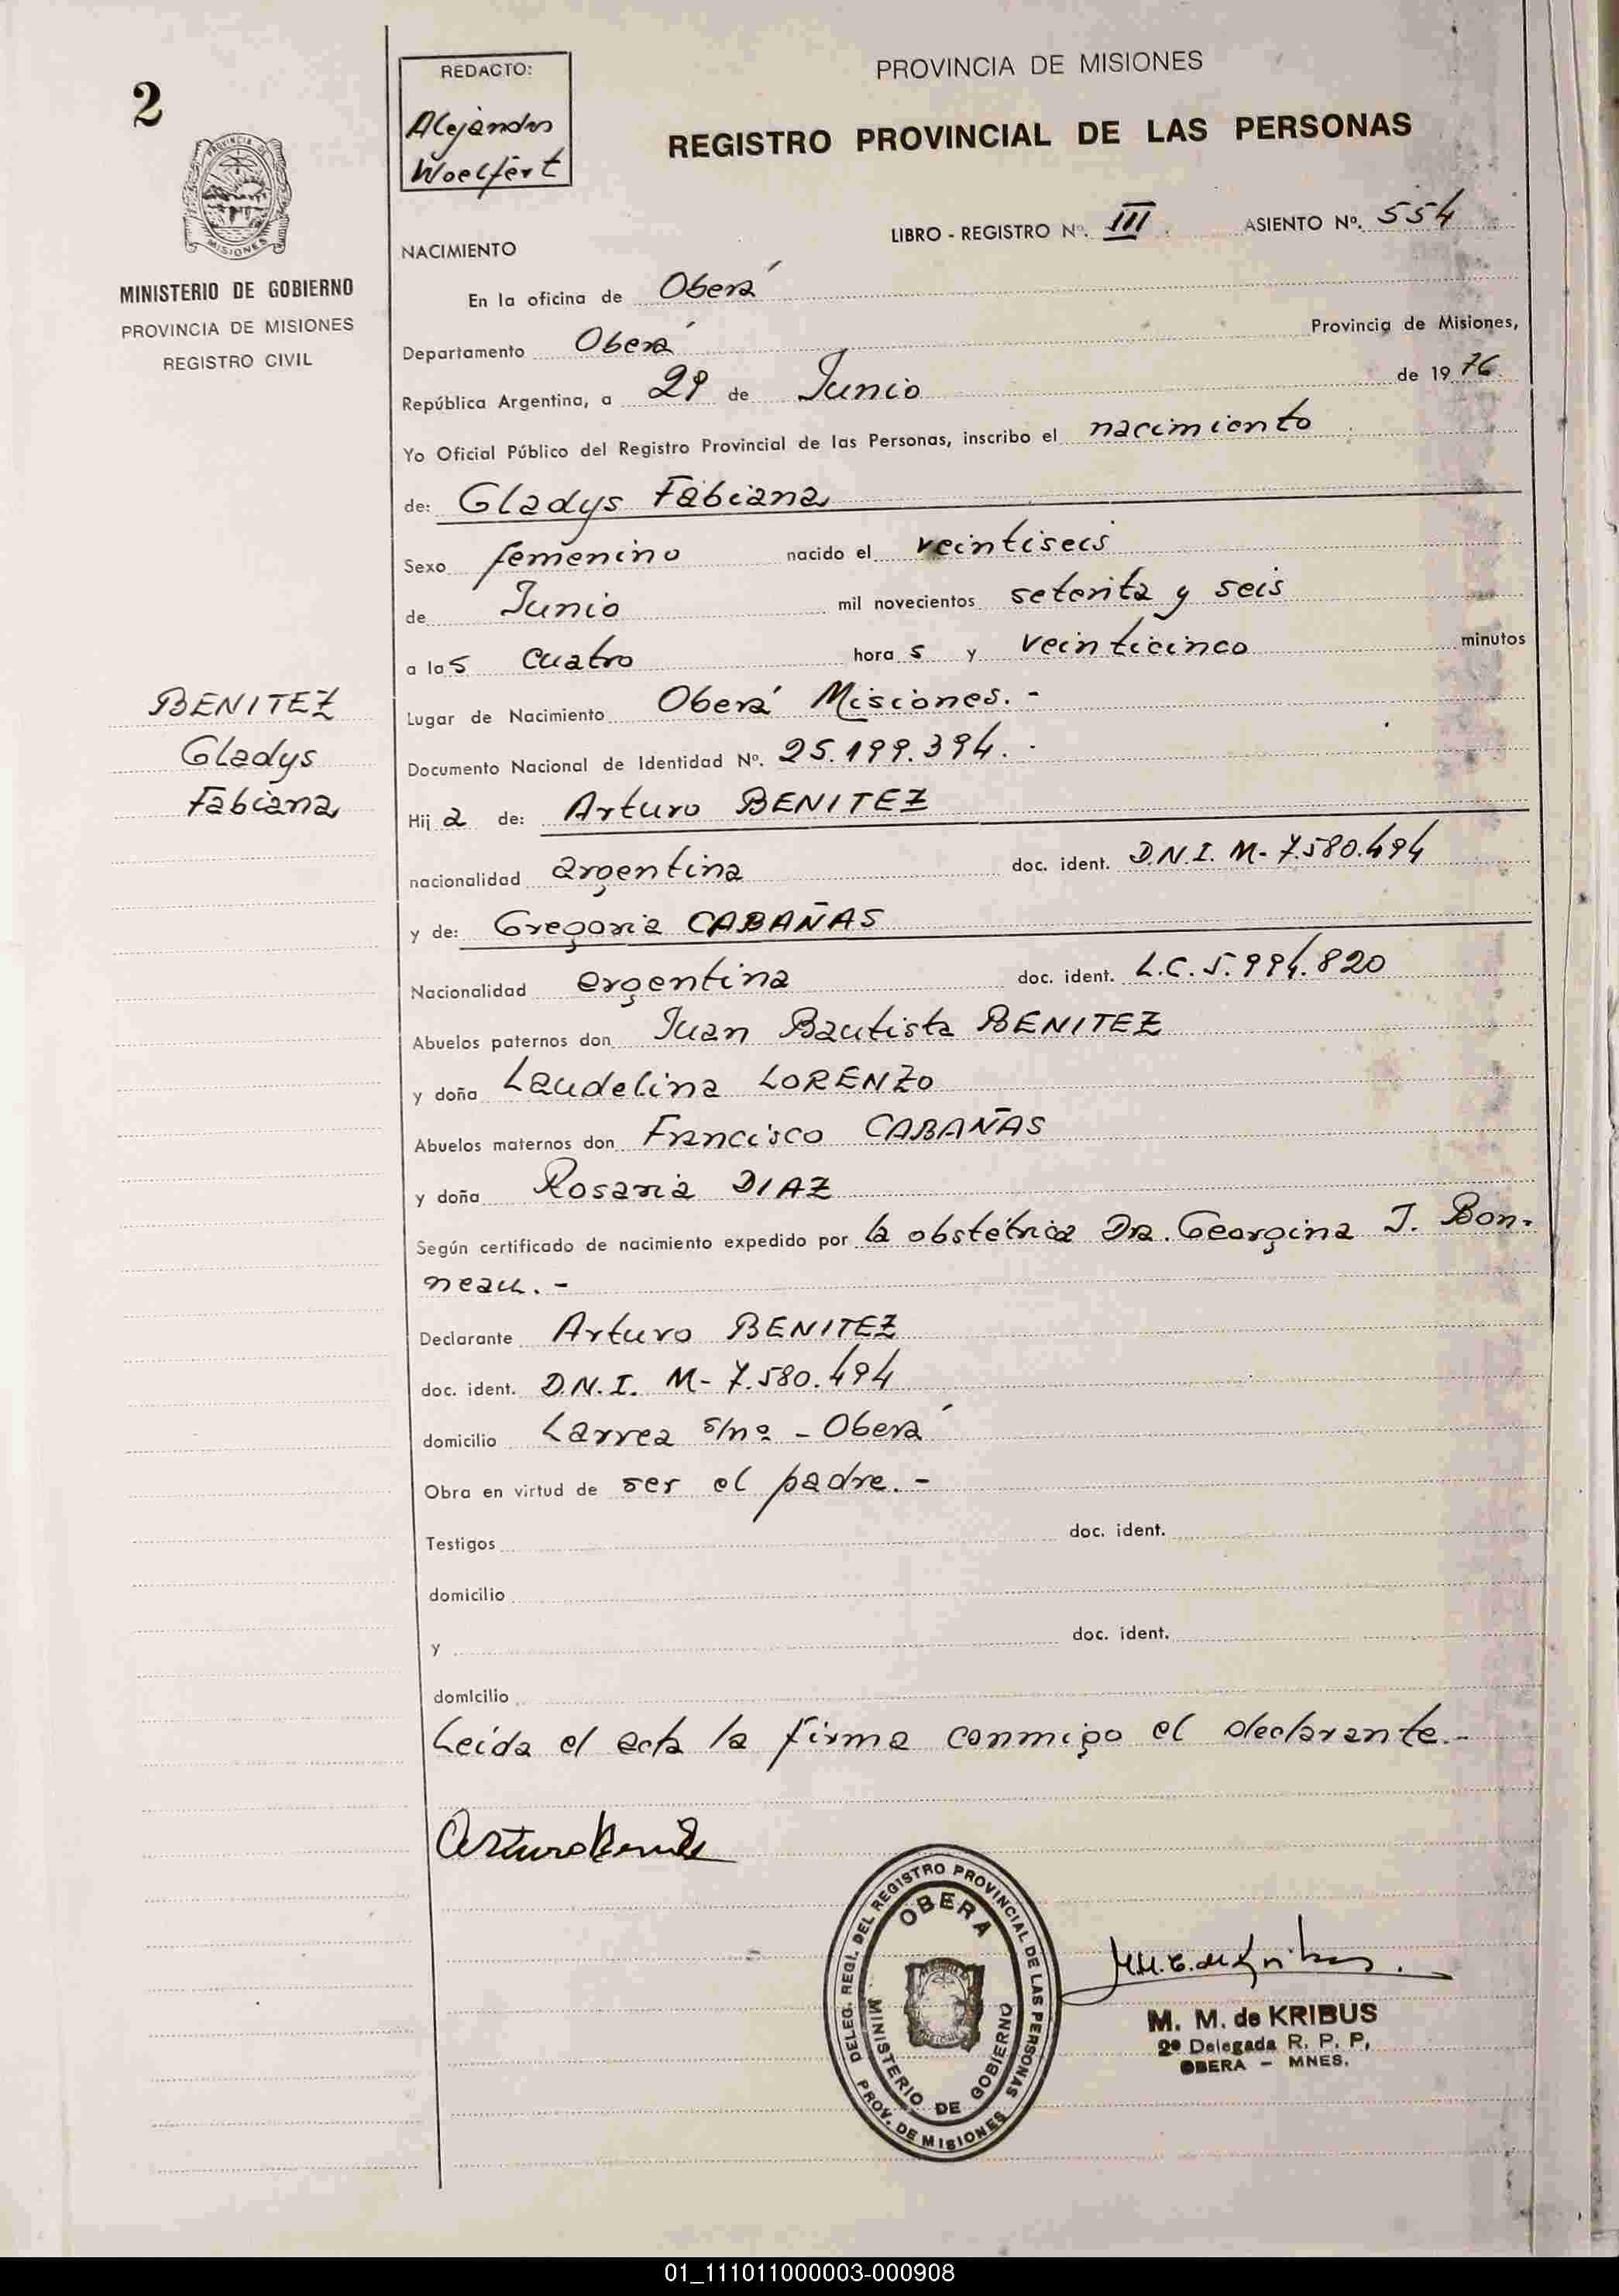 2
REDACTO:
Alejandro
Woelfert
PROVINCIA DE MISIONES
REGISTRO PROVINCIAL DE LAS PERSONAS
PROVINCIA DE
MISIONES
MINISTERIO DE GOBIERNO
PROVINCIA DE MISIONES
REGISTRO CIVIL
NACIMIENTO
LIBRO - REGISTRO Nº. III ASIENTO Nº. 554
En la oficina de Oberá
Departamento Oberá Provincia de Misiones,
República Argentina, a 29 de Junio de 1976
Yo Oficial Público del Registro Provincial de las Personas, inscribo el nacimiento
de: Gladys Fabiana
Sexo femenino nacido el veintiseis
de Junio mil novecientos setenta y seis
a las cuatro horas y veinticinco minutos
BENITEZ
Gladys
Fabiana
Lugar de Nacimiento Oberá Misiones.-
Documento Nacional de Identidad Nº. 25.199.394.
Hija de: Arturo BENITEZ
nacionalidad argentina doc. ident. D.N.I. M- 7.580.494
y de: Gregoria CABAÑAS
Nacionalidad argentina doc. ident. L.C. 5.994.820
Abuelos paternos don Juan Bautista BENITEZ
y doña Laudelina LORENZO
Abuelos maternos don Francisco CABAÑAS
y doña Rosaria DIAZ
Según certificado de nacimiento expedido por la obstétrica Dra. Georgina J. Bon-
neau.-
Declarante Arturo BENITEZ
doc. ident. D.N.I. M- 7.580.494
domicilio Larrea s/nº - Oberá
Obra en virtud de ser el padre.-
Testigos doc. ident.
domicilio
y doc. ident.
domicilio
Leída el acta la firma conmigo el declarante.-
Arturo Benitez
DELEG. REGI. DEL REGISTRO PROVINCIAL DE LAS PERSONAS
PROV. DE MISIONES
OBERA
MINISTERIO DE GOBIERNO
M. M. de KRIBUS
2º Delegada R. P. P.
OBERA - MNES.
01_111011000003-000908